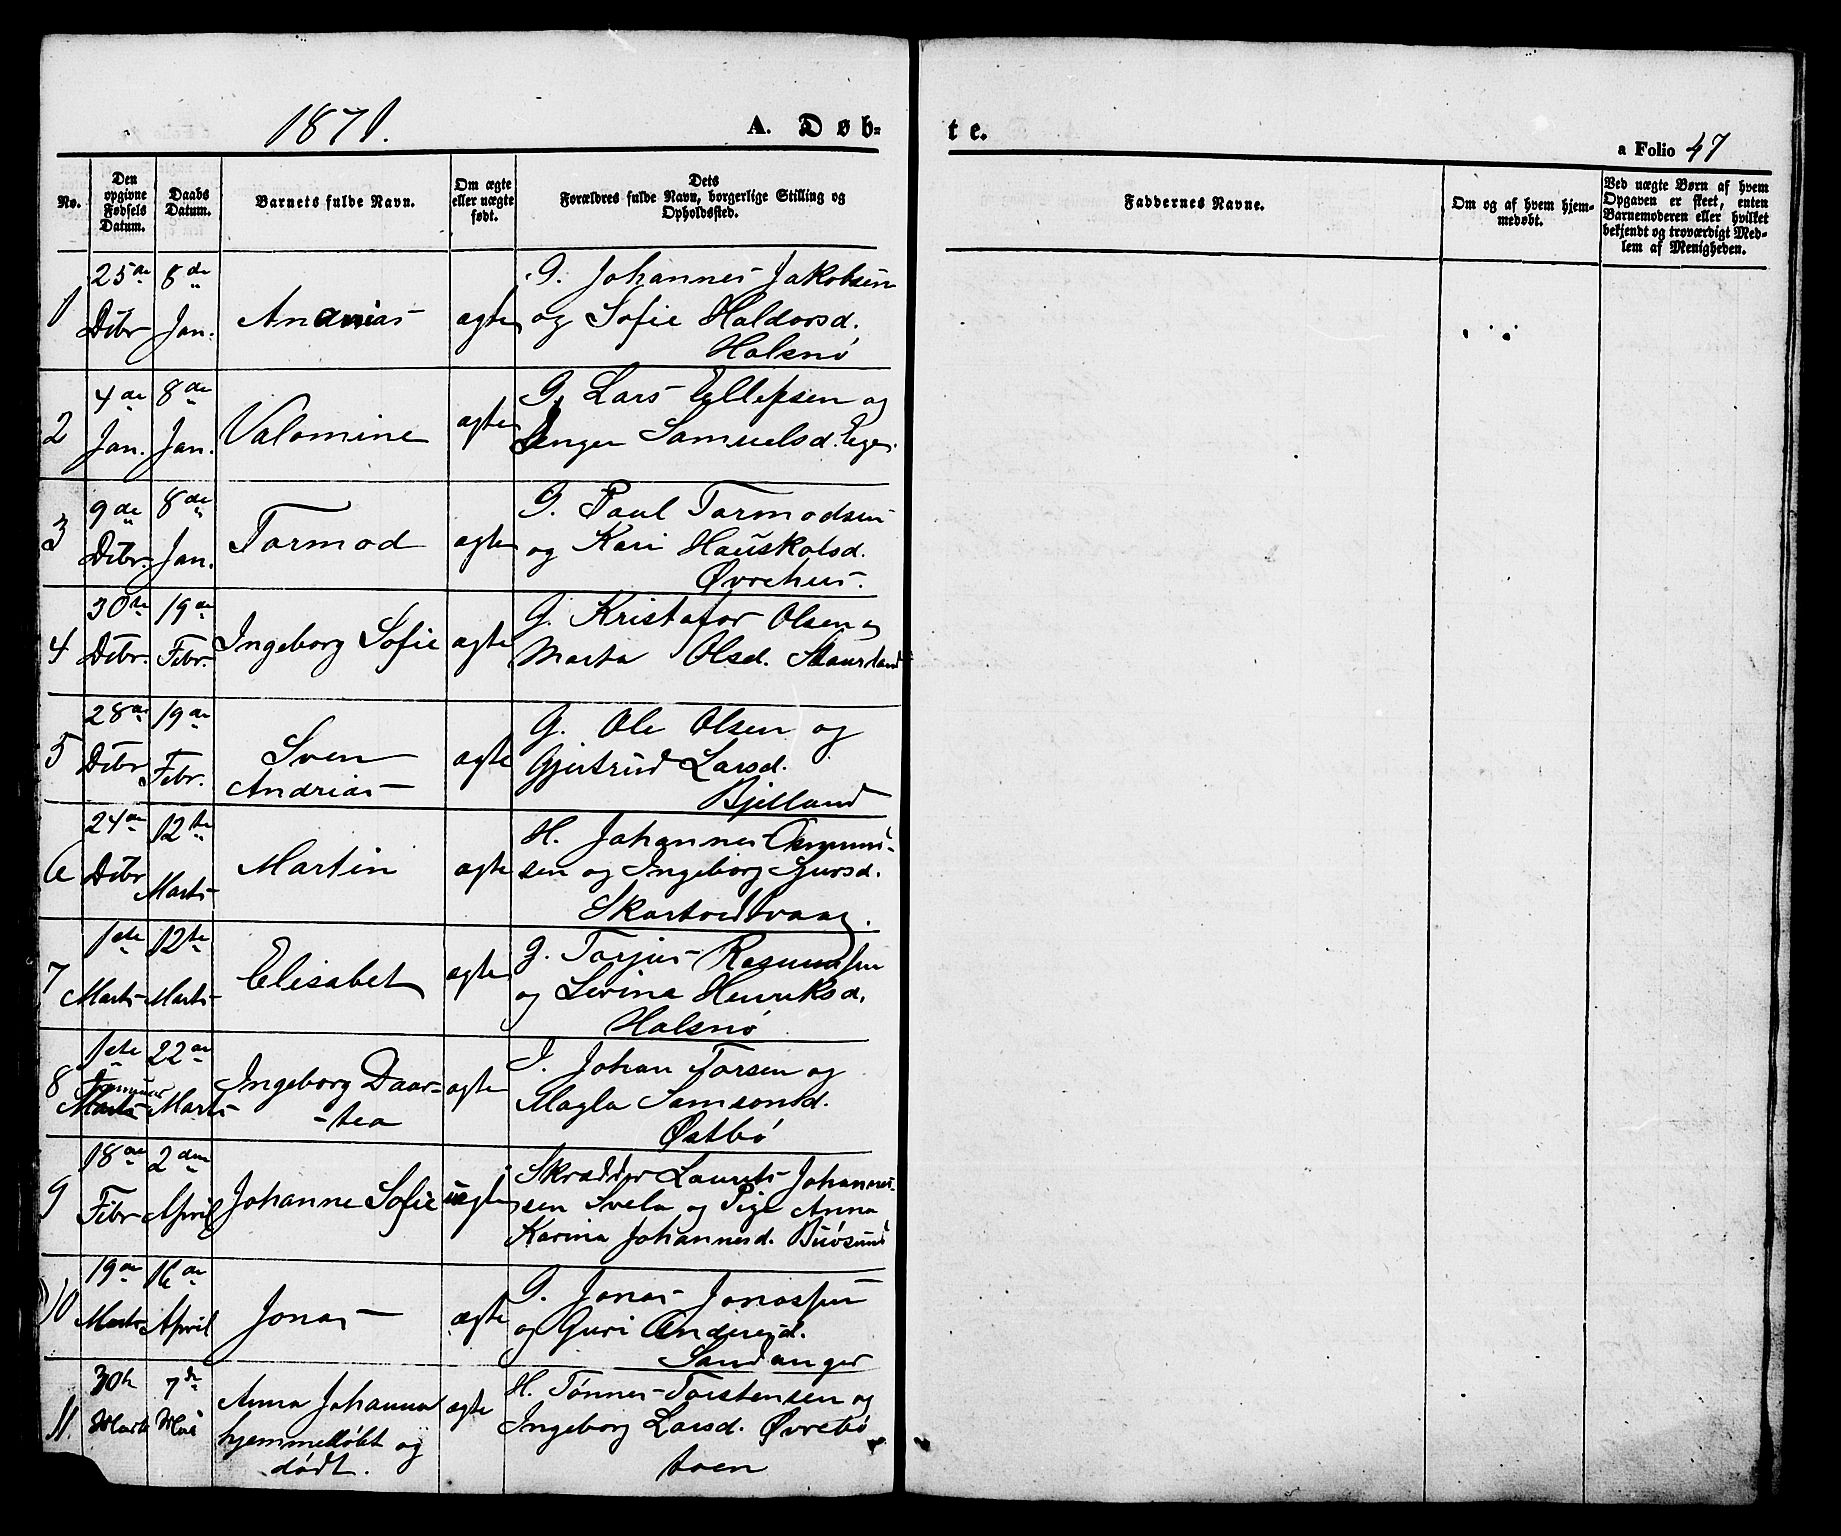 1871.
A. Døb-
te.
a Folio 47
No.
Den opgivne Fødsels Datum.
Daabs Datum.
Barnets fulde Navn.
Om ægte eller uægte født.
Dets Forældres fulde Navn, borgerlige Stilling og Opholdssted.
Faddernes Navne.
Om og af hvem hjem-
medøbt.
Ved uægte Børn af hvem
Opgaven er skeet, enten
Barnemoderen eller hvilket
bekjendt og troværdigt Med-
lem af Menigheden.
1 25de Dcbr 8de Jan. Andrias ægte G. Johannes Jakobsen
og Sofie Haldorsd.
Halsnø
2 4de Jan. 8de Jan. Valomine ægte G. Lars Ellefsen og
Inger Samuelsd.
3 9de Dcbr. 8de Jan. Tormod ægte G. Paul Tormodsen
og Kari Hauskolsd.
Øvrehus.
4 30te Dcbr. 19de Febr. Ingeborg Sofie ægte G. Kristofor Olsen og
Marta Olsd.
5 28de Dcbr 19de Febr. Sven
Andrias ægte G. Ole Olsen og
Gjertrud Larsd.
Bjelland
6 24de Dcbr 12te Marts Martin ægte H. Johannes Osmund-
sen og Ingeborg Sjursd.
Skartvedtvaag.
7 1ste Marts 12te Marts Elisabet ægte G. Torjus Rasmussen
og Serina Henriksd.
Halsnø
8 1ste Januar Marts 22de Marts Ingeborg Daar-
-tea ægte J. Johan Torsen og
Magla Samsonsd.
Østbø
9 18de Febr 2den April Johanne Sofie uægte Skrædder Laurits Johannes-
sen Svela og Pige Anna
Karina Johannesd. Buøsund
10 19de Marts 16de April Jonas ægte G. Jonas Jonassen
og Guri Andersd.
Sandanger
11 30te Marts 7de Mai Anna Johanna
hjemmedøbt og
dødt. ægte H. Tønnes Torstensen og
Ingeborg Larsd. Øvrebø
toen